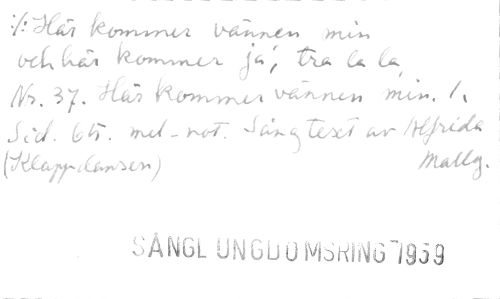 :/: Här kommer vännen min
och här kommer ja', tra la la
Nr. 37. Här kommer vännen min. 1.
Sid. 65. mel-not. Sångtext av Alfrida
(Klappdansen) Mallg.
SÅNGLUNGDOMSRING 1959